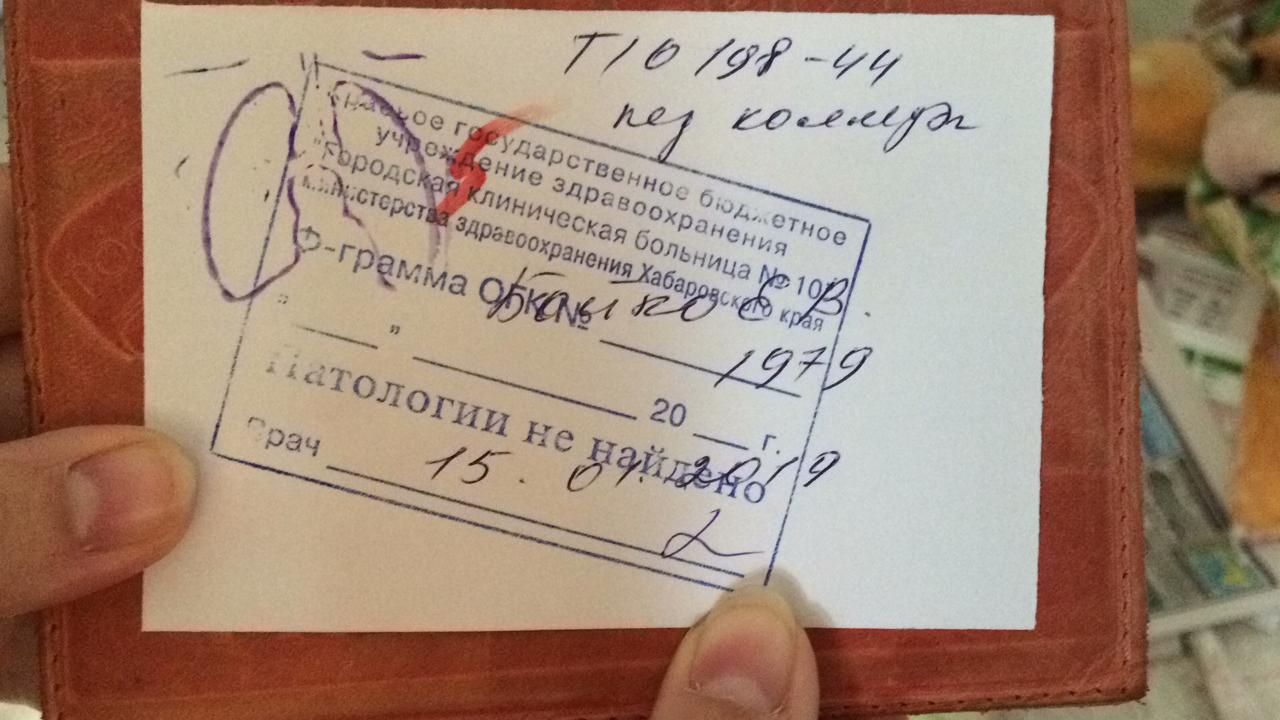 Т10 198-44
рез
Краевое государственное бюджетное
учреждение здравоохранения
"Городская клиническая больница № 10"
министерства здравоохранения Хабаровского края
Ф-грамма ОГК №
Бойко Е В.
1979
" "
20 г.
Патологии не найдено
Врач
15. 01. 2019